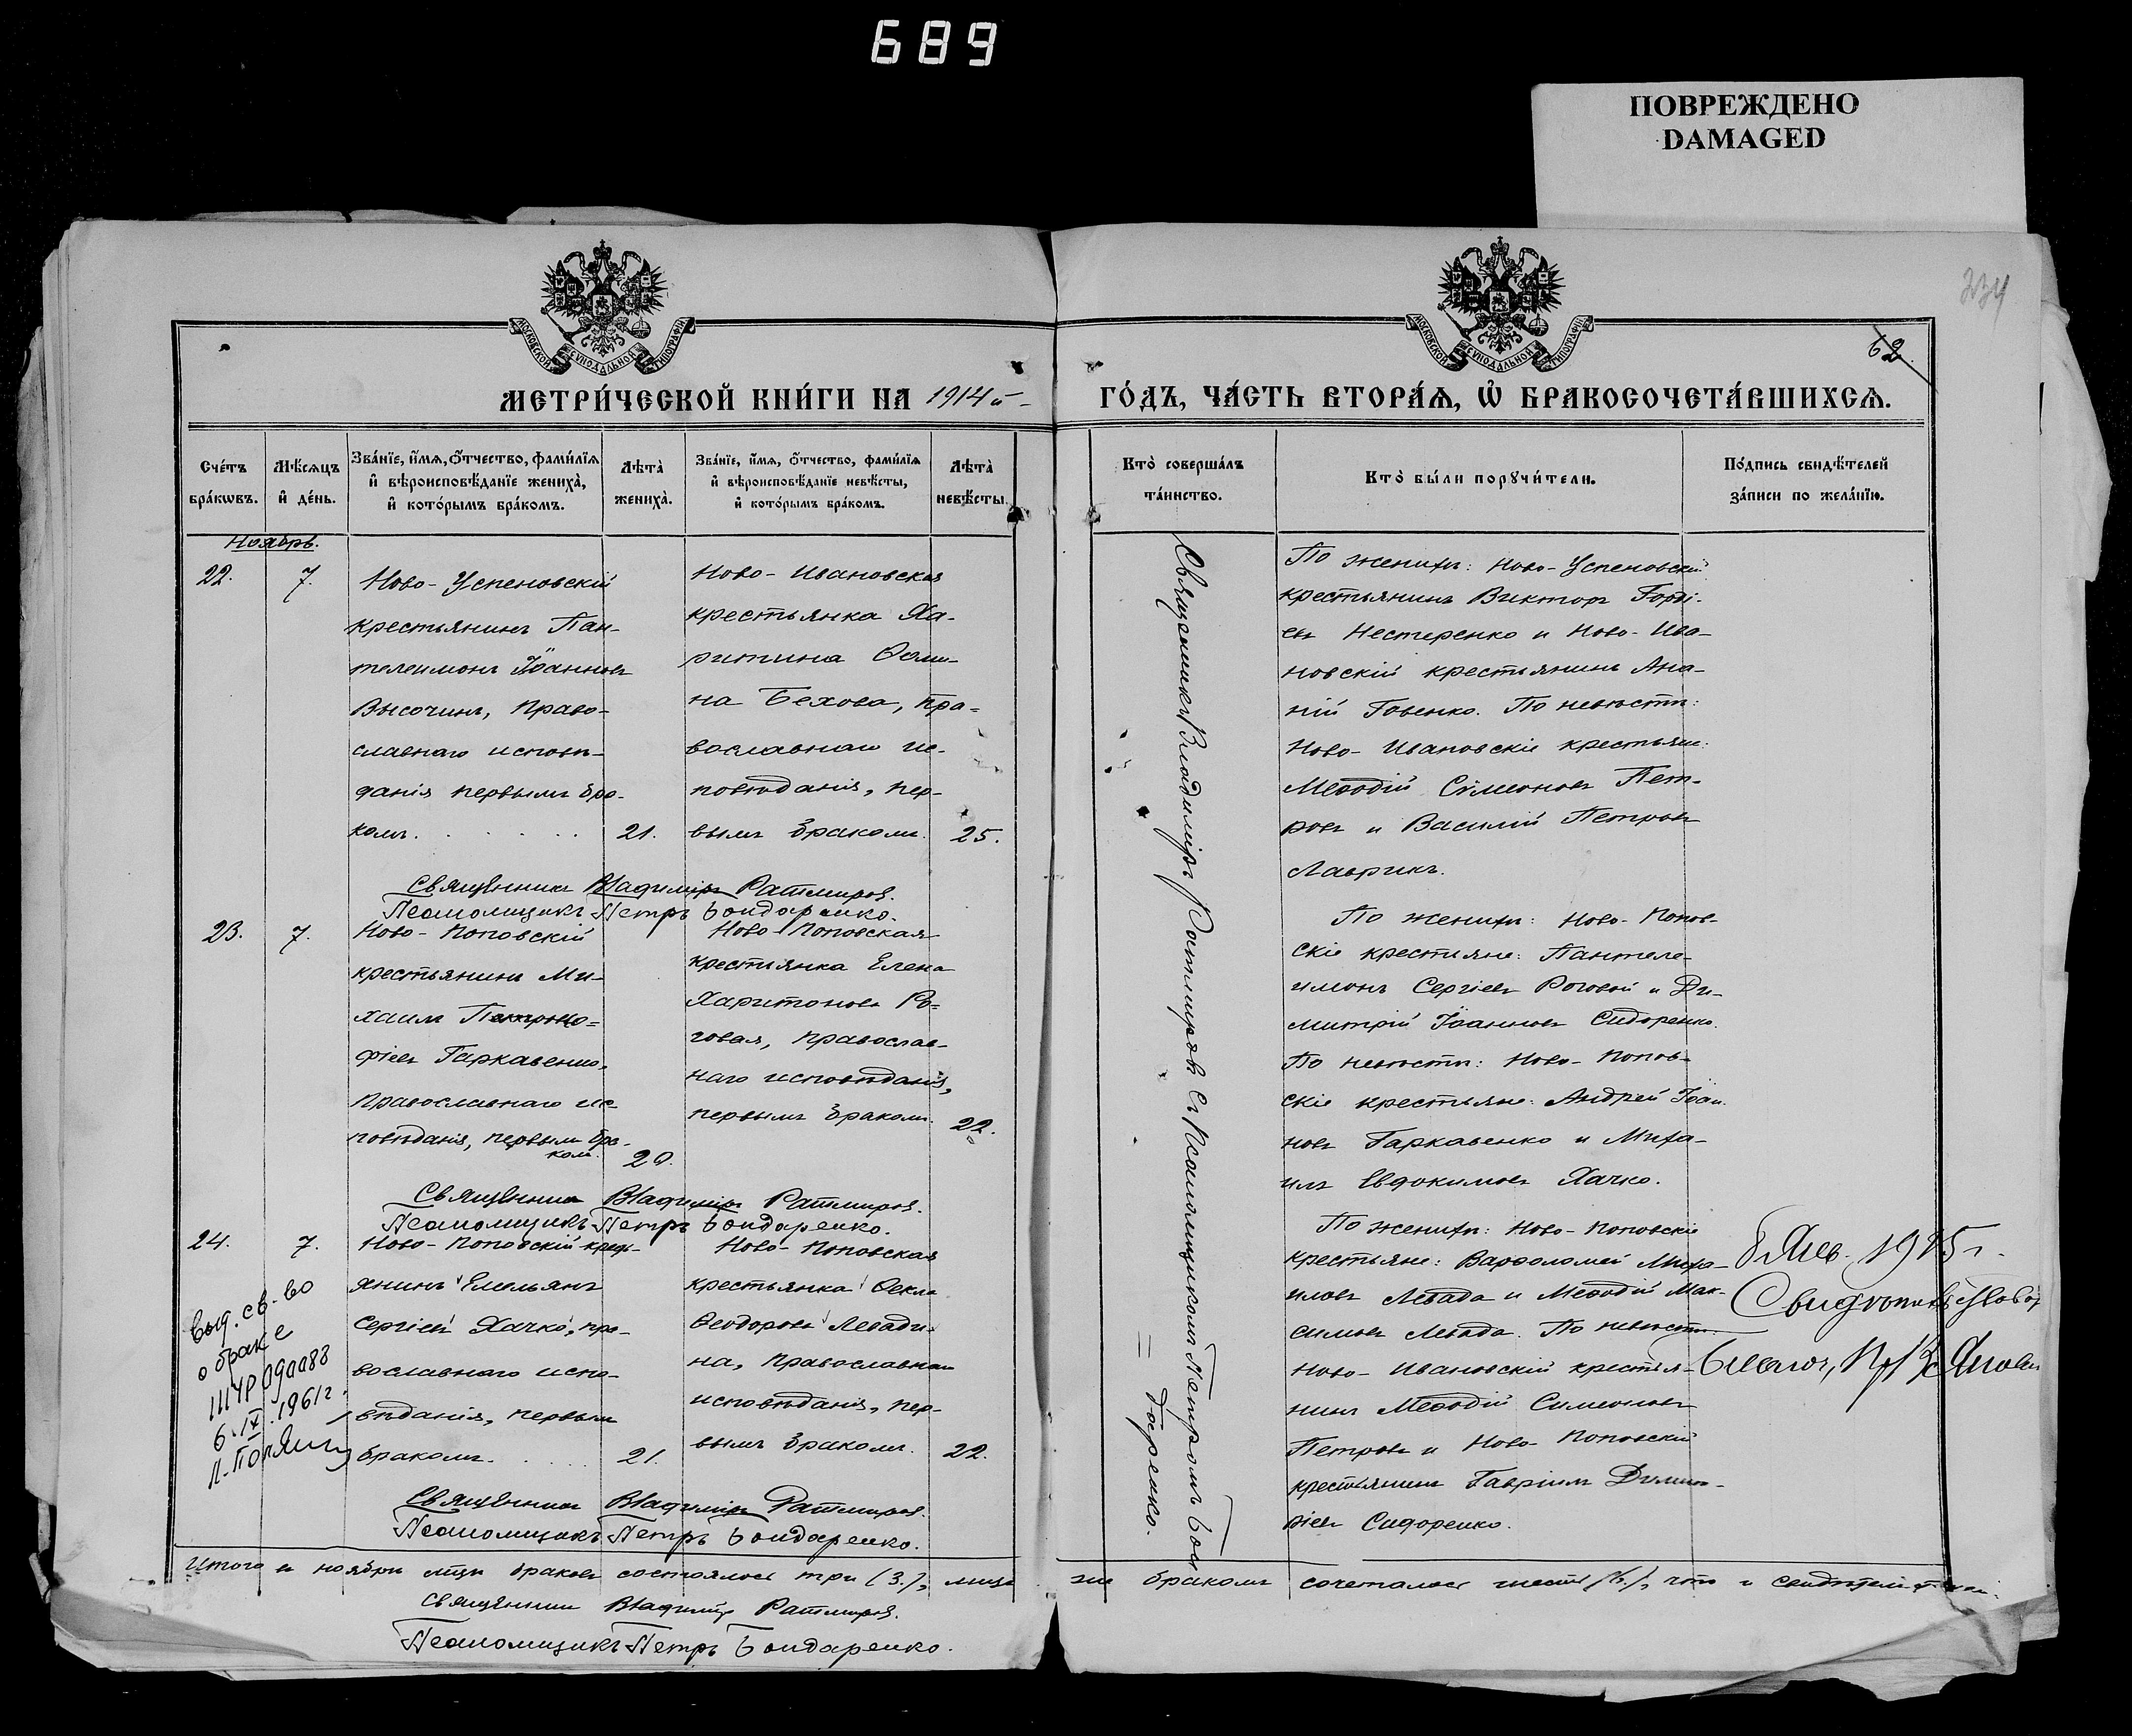 689
ПОВРЕЖДЕНО
DAMAGED
234
62
МОСКОВСКОЙ СѴНОДАЛЬНОЙ ТИПОГРАФІИ
МОСКОВСКОЙ СѴНОДАЛЬНОЙ ТИПОГРАФІИ
МЕТРИ́ЧЕСКОЙ КНИ́ГИ НА 1914й
ГО́ДЪ, ЧА́СТЬ ВТОРА́Ѧ, Ѽ БРАКОСОЧЕТА́ВШИХСѦ.
Сче́тъ
бра́кѡвъ.
Мѣ́сѧцъ
и҆ де́нь.
Зва́нїе, и҆́мѧ, ѻ҆́тчество, фами́лїѧ
и҆ вѣроисповѣ́данїе жениха̀,
и҆ кото́рымъ бра́комъ.
Лѣта̀
жениха̀.
Зва́нїе, и҆́мѧ, ѻ҆́тчество, фами́лїѧ
и҆ вѣроисповѣ́данїе невѣ́сты,
и҆ кото́рымъ бра́комъ.
Лѣта̀
невѣ́сты.
Кто̀ соверша́лъ
та́инство.
Кто̀ бы́ли порꙋчи́тели.
По́дпись свидѣ́телей
за́писи по жела́нїю.
Ноябрь.
22.
7.
Ново-Успеновскій
крестьянинъ Пан-
телеимонъ Іоанновъ
Высочинъ, Право-
славнаго исповѣ-
данія первымъ бра-
комъ.
21.
Ново-Ивановская
крестьянка Ха-
ритина Ѳоми-
на Бехова, пра-
вославнаго ис-
повѣданія, пер-
вымъ бракомъ.
25.
По женихѣ: Ново-Успеновскій
крестьянинъ Викторъ Горді-
евъ Нестеренко и Ново-Ива-
новскій крестьянинъ Ана-
ній Говенко. По невѣстѣ:
Ново-Ивановскіе крестьяне:
Меѳодій Симеоновъ Пет-
ровъ и Василій Петровъ
Лаврикъ.
Священникъ Владиміръ Ратмировъ.
Псаломщикъ Петръ Бондаренко.
23.
7.
Ново-Поповскій
крестьянинъ Ми-
хаилъ
фіевъ Гаркавенко,
православнаго ис-
повѣданія, первымъ бра-
комъ.
20.
Ново-Поповская
крестьянка Елена
Харитонова Ро-
говая, православ-
наго исповѣданія,
первымъ бракомъ.
22.
По женихѣ: Ново-Попов-
скіе крестьяне: Пантеле-
имонъ Сергіевъ Роговой и Ди-
митрій Іоанновъ Сидоренко.
По невѣстѣ: Ново-Попов-
скіе крестьяне: Андрей Іоан-
новъ Гаркавенко и Миха-
илъ Евдокимовъ Хачко.
Священникъ Владиміръ Ратмировъ.
Псаломщикъ Петръ Бондаренко.
24.
7.
Ново-Поповскій кресть-
янинъ Емельянъ
Сергіевъ Хачко, пра-
вославнаго испо-
вѣданія, первымъ
бракомъ.
21.
Ново-Поповская
крестьянка Ѳекла
Ѳеодорова Лебеди-
на, православнаго
исповѣданія, пер-
вымъ бракомъ.
22.
По женихѣ: Ново-Поповскіе
крестьяне: Варѳоломей Миха-
иловъ Лебеда и Меѳодій Мак-
симовъ Лебеда. По невѣстѣ:
Ново-Ивановскій крестья-
нинъ Меѳодій Симеоновъ
Петровъ и Ново-Поповскій
крестьянинъ Гавріилъ Димит-
ріевъ Сидоренко.
выд. св-во
о браке
6.IX.1961г.
Священникъ Владиміръ Ратмировъ.
Псаломщикъ Петръ Бондаренко.
Священникъ Владиміръ Ратмировъ съ Псаломщикомъ Петромъ Бон
= даренко.
Итого въ ноябрѣ мѣсяцѣ браковъ состоялось три (3.), лицъ же бракомъ сочеталось шесть (6.), что и
Священникъ Владиміръ Ратмировъ.
Псаломщикъ Петръ Бондаренко.